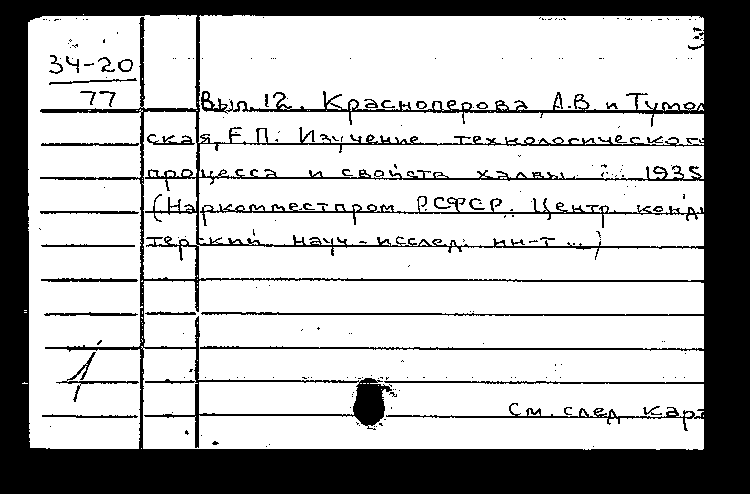 3
34-20
77
Вып. 12. Красноперова, А.В. и Тумол
ская, Е.П. Изучение технологического
процесса и свойств халвы. 1935
(Наркомместпром РСФСР. Центр. конди
терский науч-исслед. ин-т ...)
1
См. след карт